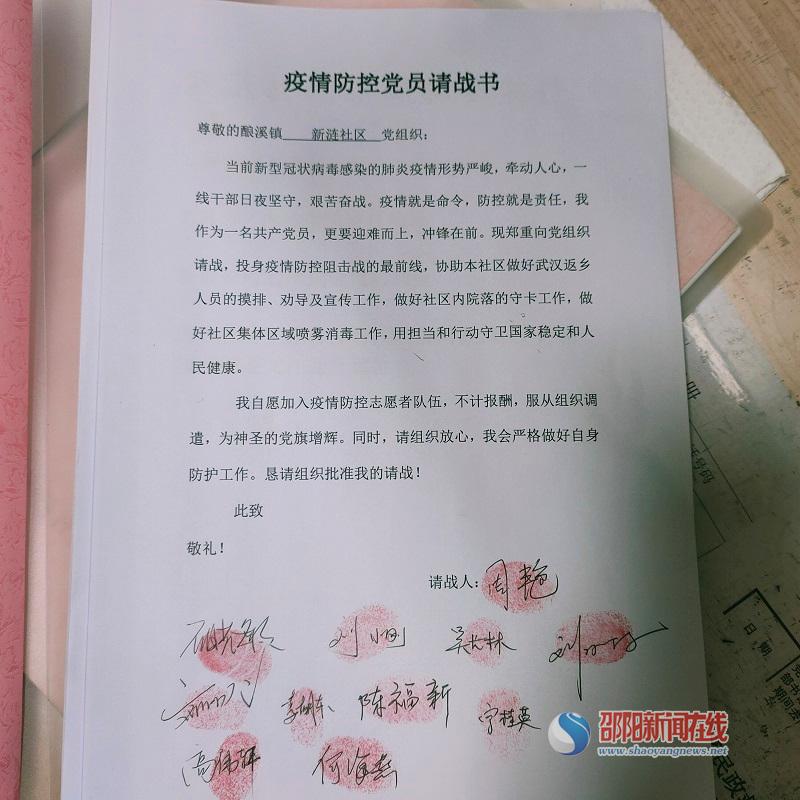 疫情防控党员请战书
尊敬的酿溪镇 新涟社区 党组织：
当前新型冠状病毒感染的肺炎疫情形势严峻，牵动人心，一
线干部日夜坚守，艰苦奋战。疫情就是命令，防控就是责任，我
作为一名共产党员，更要迎难而上，冲锋在前。现郑重向党组织
请战，投身疫情防控阻击战的最前线，协助本社区做好武汉返乡
人员的摸排、劝导及宣传工作，做好社区内院落的守卡工作，做
好社区集体区域喷雾消毒工作，用担当和行动守卫国家稳定和人
民健康。
我自愿加入疫情防控志愿者队伍，不计报酬，服从组织调
遣，为神圣的党旗增辉。同时，请组织放心，我会严格做好自身
防护工作。恳请组织批准我的请战！
此致
敬礼！
请战人：周艳
刘小刚 吴长林
陈福新 宁桂英
何海燕
邵阳新闻在线
www.shaoyangnews.net
号码
日期
民政